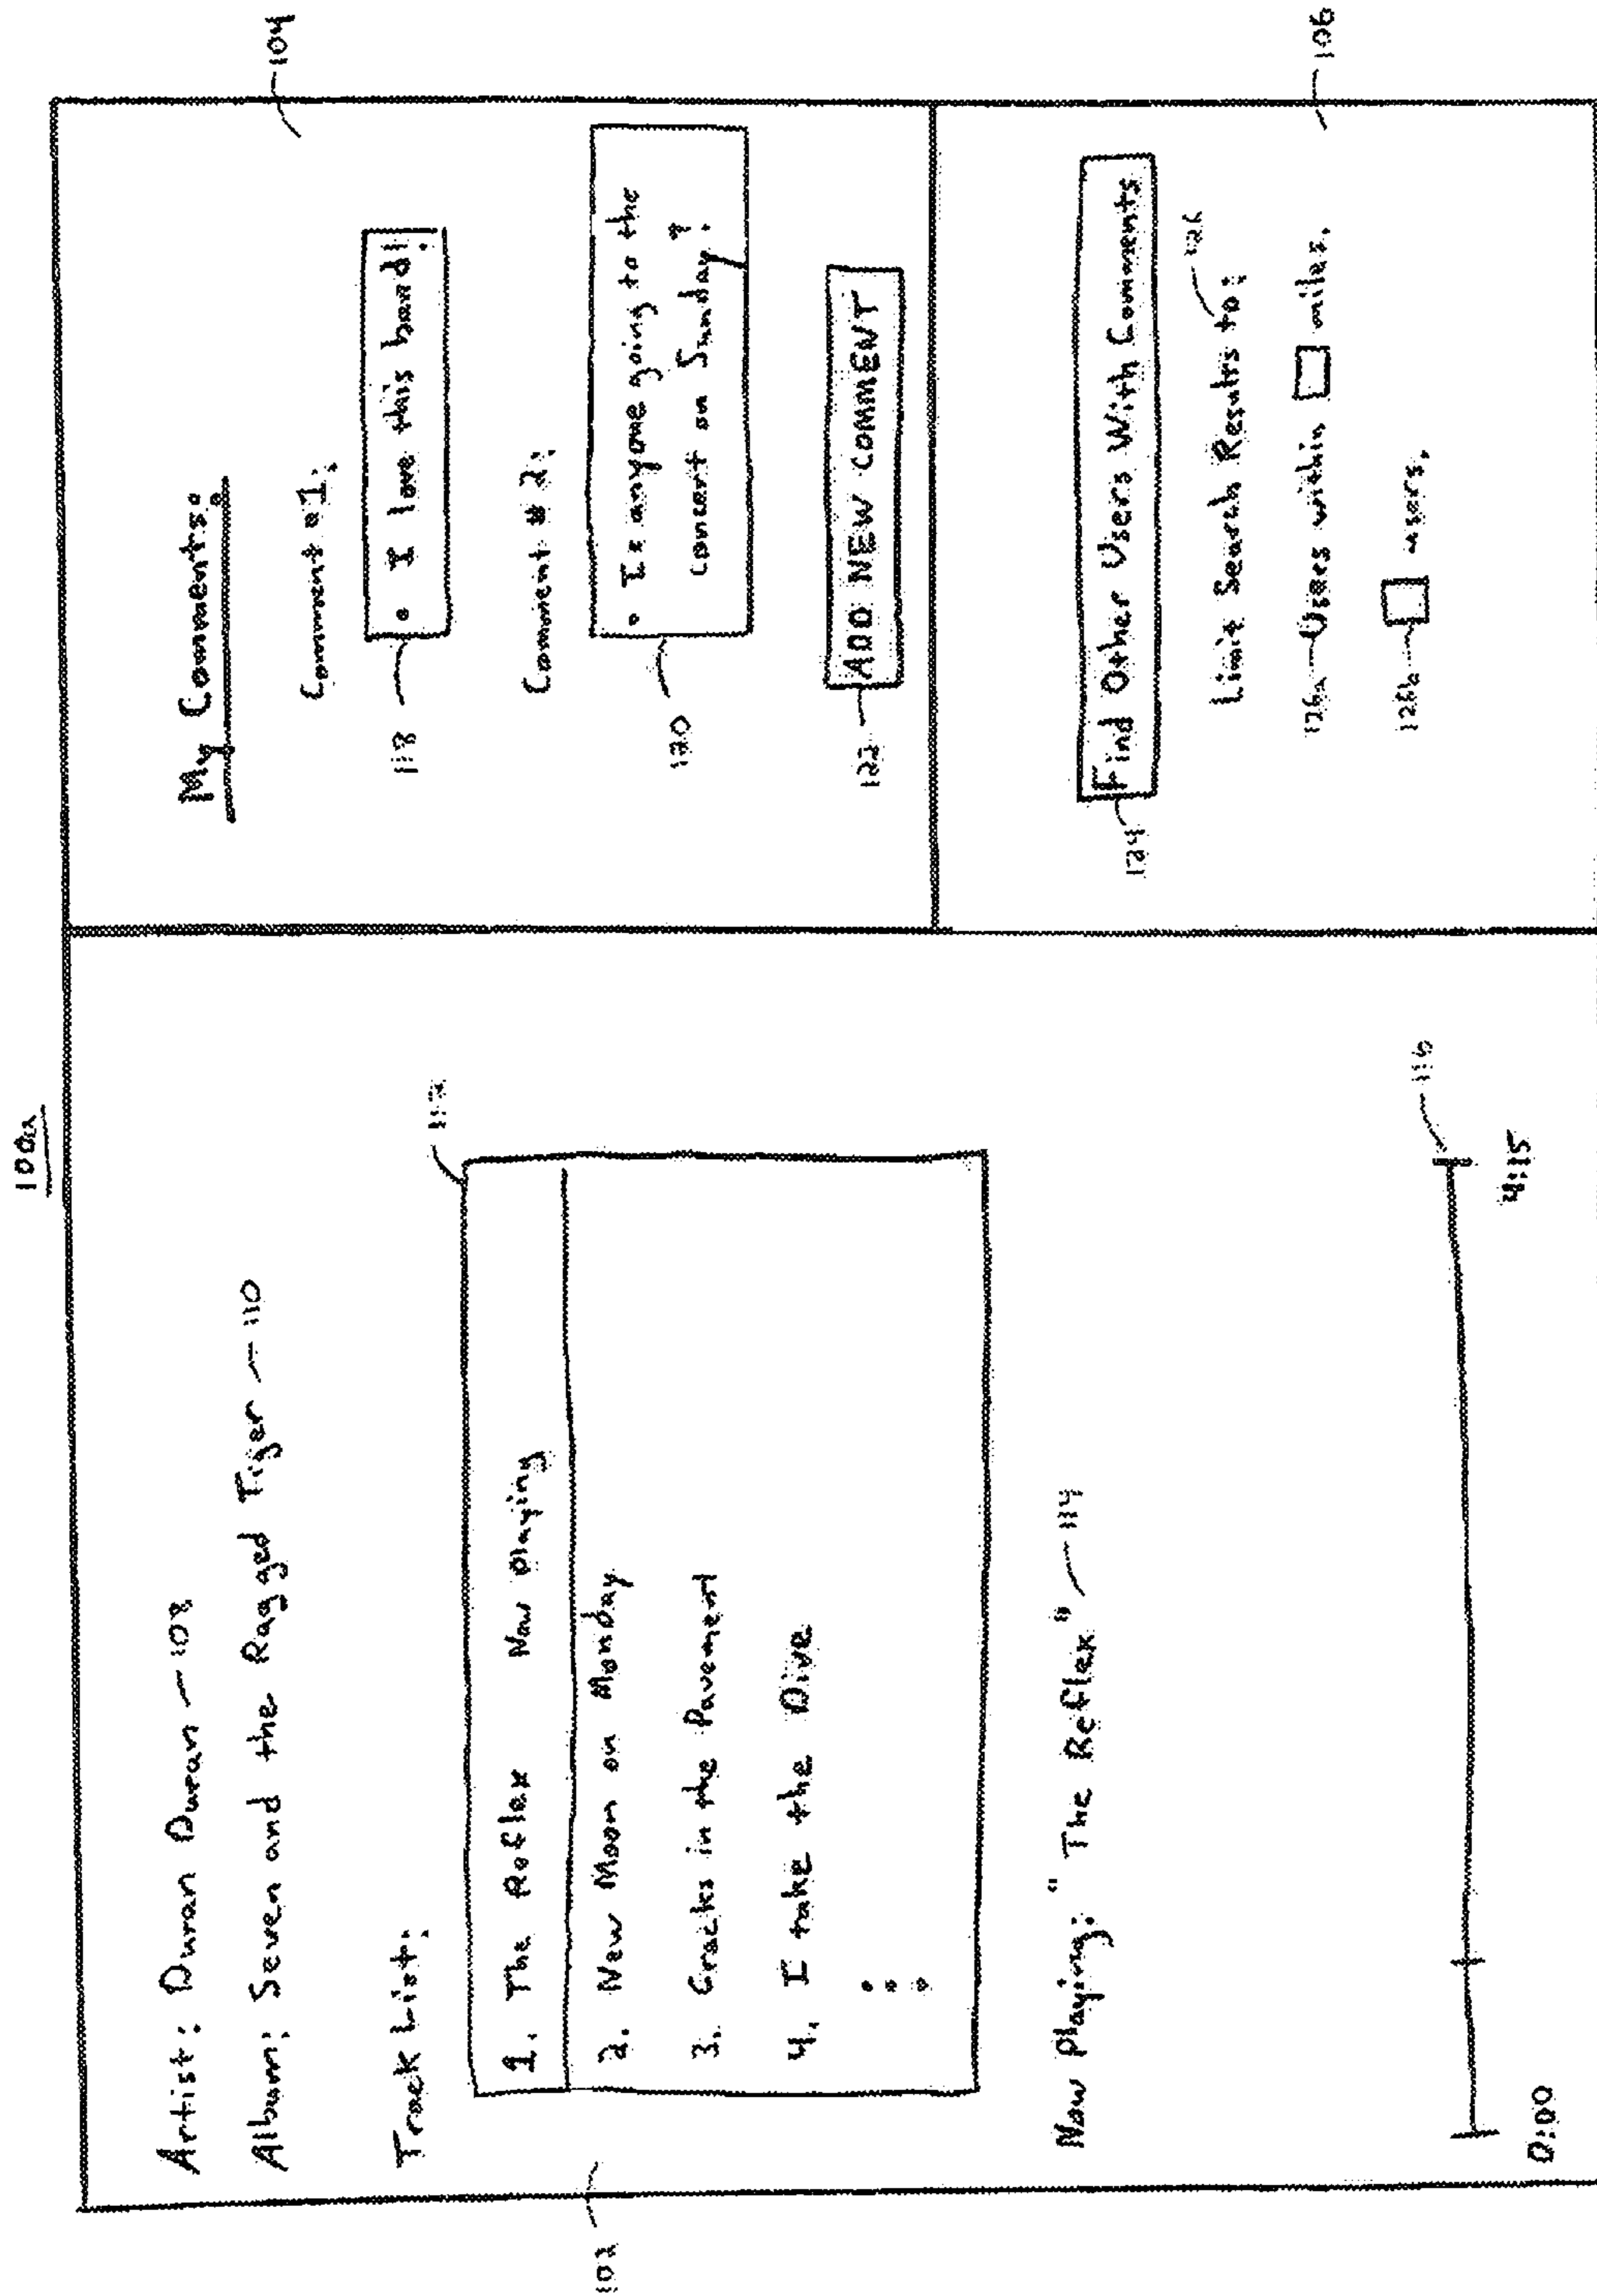 100a
Artist: Duran Duran — 108
Album: Seven and the Ragged Tiger — 110
Track List:
112
1. The Reflex Now Playing
2. New Moon on Monday
3. Cracks in the Pavement
4. I take the Dive
Now Playing: "The Reflex" — 114
116
0:00 4:15
102
104
My Comments:
Comment #1:
118
• I love this band!
Comment #2:
120
• Is anyone going to the
concert on Sunday?
122
ADD NEW COMMENT
106
124
Find Other Users With Comments
Limit Search Results to:
126
126a Users within miles.
126b users.